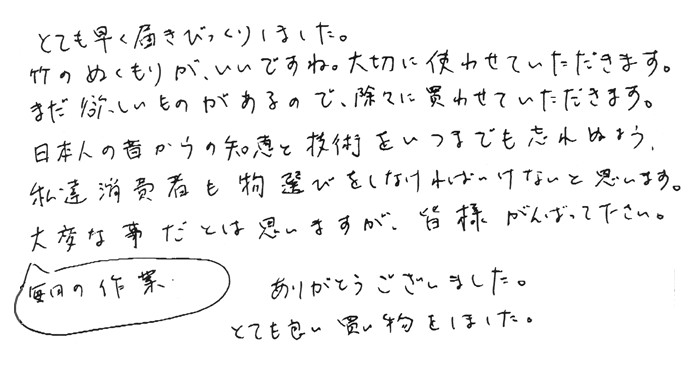 とても早く届きびっくりしました。
竹のぬくもりが、いいですね。大切に使わせていただきます。
まだ欲しいものがあるので、除々に買わせていただきます。
日本人の昔からの知恵と技術をいつまでも忘れぬよう、
私達消費者も物選びをしなければいけないと思います。
大変な事だとは思いますが、皆様がんばってださい。
毎日の作業
ありがとうございました。
とても良い買い物をしました。